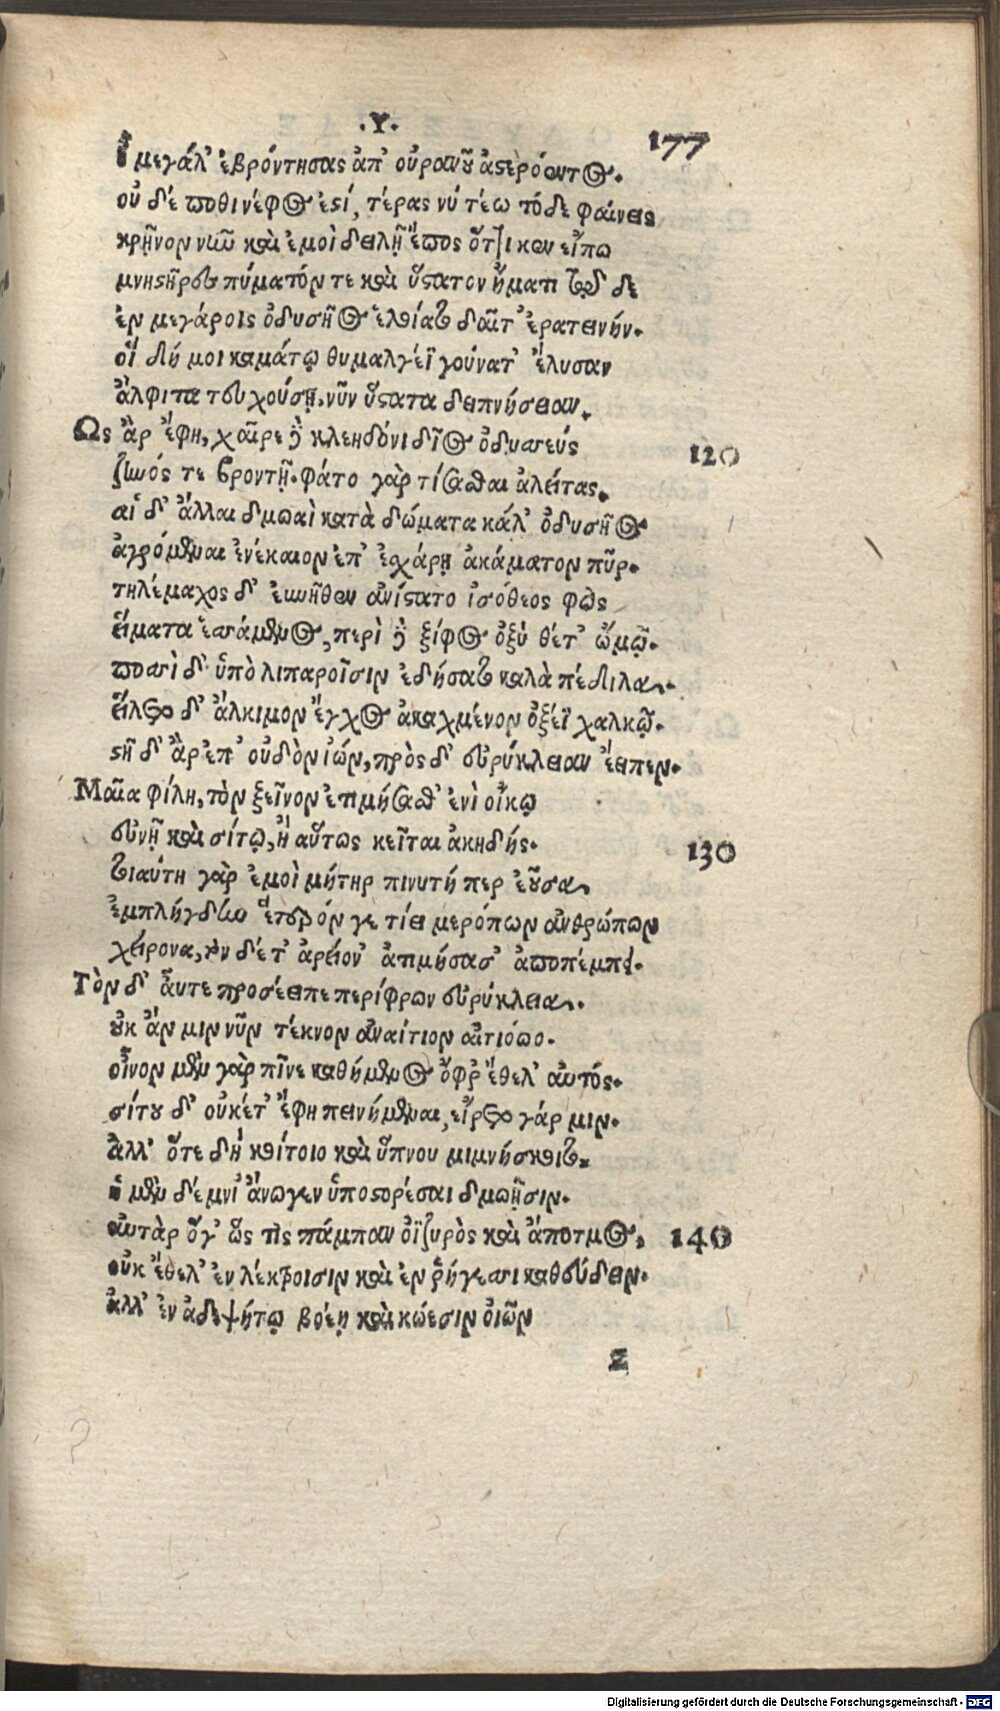 .Υ.
177
ἦ μεγάλ' ἐβρόντησας ἀπ' οὐρανοῦ ἀστερόεντος.
οὐ δέ ποθι νέφος ἐστί, τέρας νύ τέω τόδε φαίνεις
κρῆνον νῦν καὶ ἐμοὶ δειλῇ ἔπος ὅττι κεν εἴπω
μνηστῆρες πύματόν τε καὶ ὕστατον ἤματι τῷ δε
ἐν μεγάροις ὀδυσῆος ἑλοίατο δαῖτ' ἐρατεινήν.
οἳ δή μοι καμάτῳ θυμαλγέϊ γούνατ' ἔλυσαν
ἄλφιτα τευχούσῃ. νῦν ὕστατα δειπνήσειαν.
Ὣς ἄρ ἔφη, χαῖρε δὲ κλεηδόνι δῖος ὀδυσσεύς
120
ζηνός τε βροντῇ. φάτο γὰρ τίσασθαι ἀλείτας.
αἱ δ' ἄλλαι δμωαὶ κατὰ δώματα κάλ' ὀδυσῆος
ἀγρόμεναι ἐνέκαιον ἐπ' ἐσχάρῃ ἀκάματον πῦρ.
τηλέμαχος δ' εὐνῆθεν ἀνίστατο ἰσόθεος φὼς
εἵματα ἑσσάμενος, περὶ δὲ ξίφος ὀξὺ θέτ' ὤμῳ.
ποσσὶ δ' ὑπὸ λιπαροῖσιν ἐδήσατο καλὰ πέδιλα.
εἵλετο δ' ἄλκιμον ἔγχος ἀκαχμένον ὀξέϊ χαλκῷ.
στῆ δ' ἄρ ἐπ' οὐδὸν ἰών, πρὸς δ' εὐρύκλειαν ἔειπεν.
Μαῖα φίλη, τὸν ξεῖνον ἐτιμήσασθ' ἐνὶ οἴκῳ
εὐνῇ καὶ σίτῳ, ἢ αὔτως κεῖται ἀκηδής.
130
τοιαύτη γὰρ ἐμοὶ μήτηρ πινυτή περ ἐοῦσα.
ἐμπλήγδην ἕτερόν γε τίει μερόπων ἀνθρώπων
χείρονα, τὸν δέ τ' ἀρείον' ἀτιμήσασ' ἀποπέμπει.
Τὸν δ' αὖτε προσέειπε περίφρων εὐρύκλεια.
οὐκ ἄν μιν νῦν τέκνον ἀναίτιον αἰτιόῳο.
οἶνον μὲν γὰρ πῖνε καθήμενος ὄφρ' ἔθελ' αὐτός.
σίτου δ' οὐκέτ' ἔφη πεινήμεναι, εἴρετο γάρ μιν.
Ἀλλ' ὅτε δὴ κοίτοιο καὶ ὕπνου μιμνήσκοιτο,
ἡ μὲν δέμνι' ἄνωγεν ὑποστορέσαι δμωῇσιν.
αὐτὰρ ὅγ' ὥς τις πάμπαν ὀϊζυρὸς καὶ ἄποτμος,
140
οὐκ ἔθελ' ἐν λέκτροισιν καὶ ἐν ῥήγεσσι καθεύδειν.
ἀλλ' ἐν ἀδεψήτῳ βοέῃ καὶ κώεσιν οἰῶν
Z
Digitalisierung gefördert durch die Deutsche Forschungsgemeinschaft - DFG